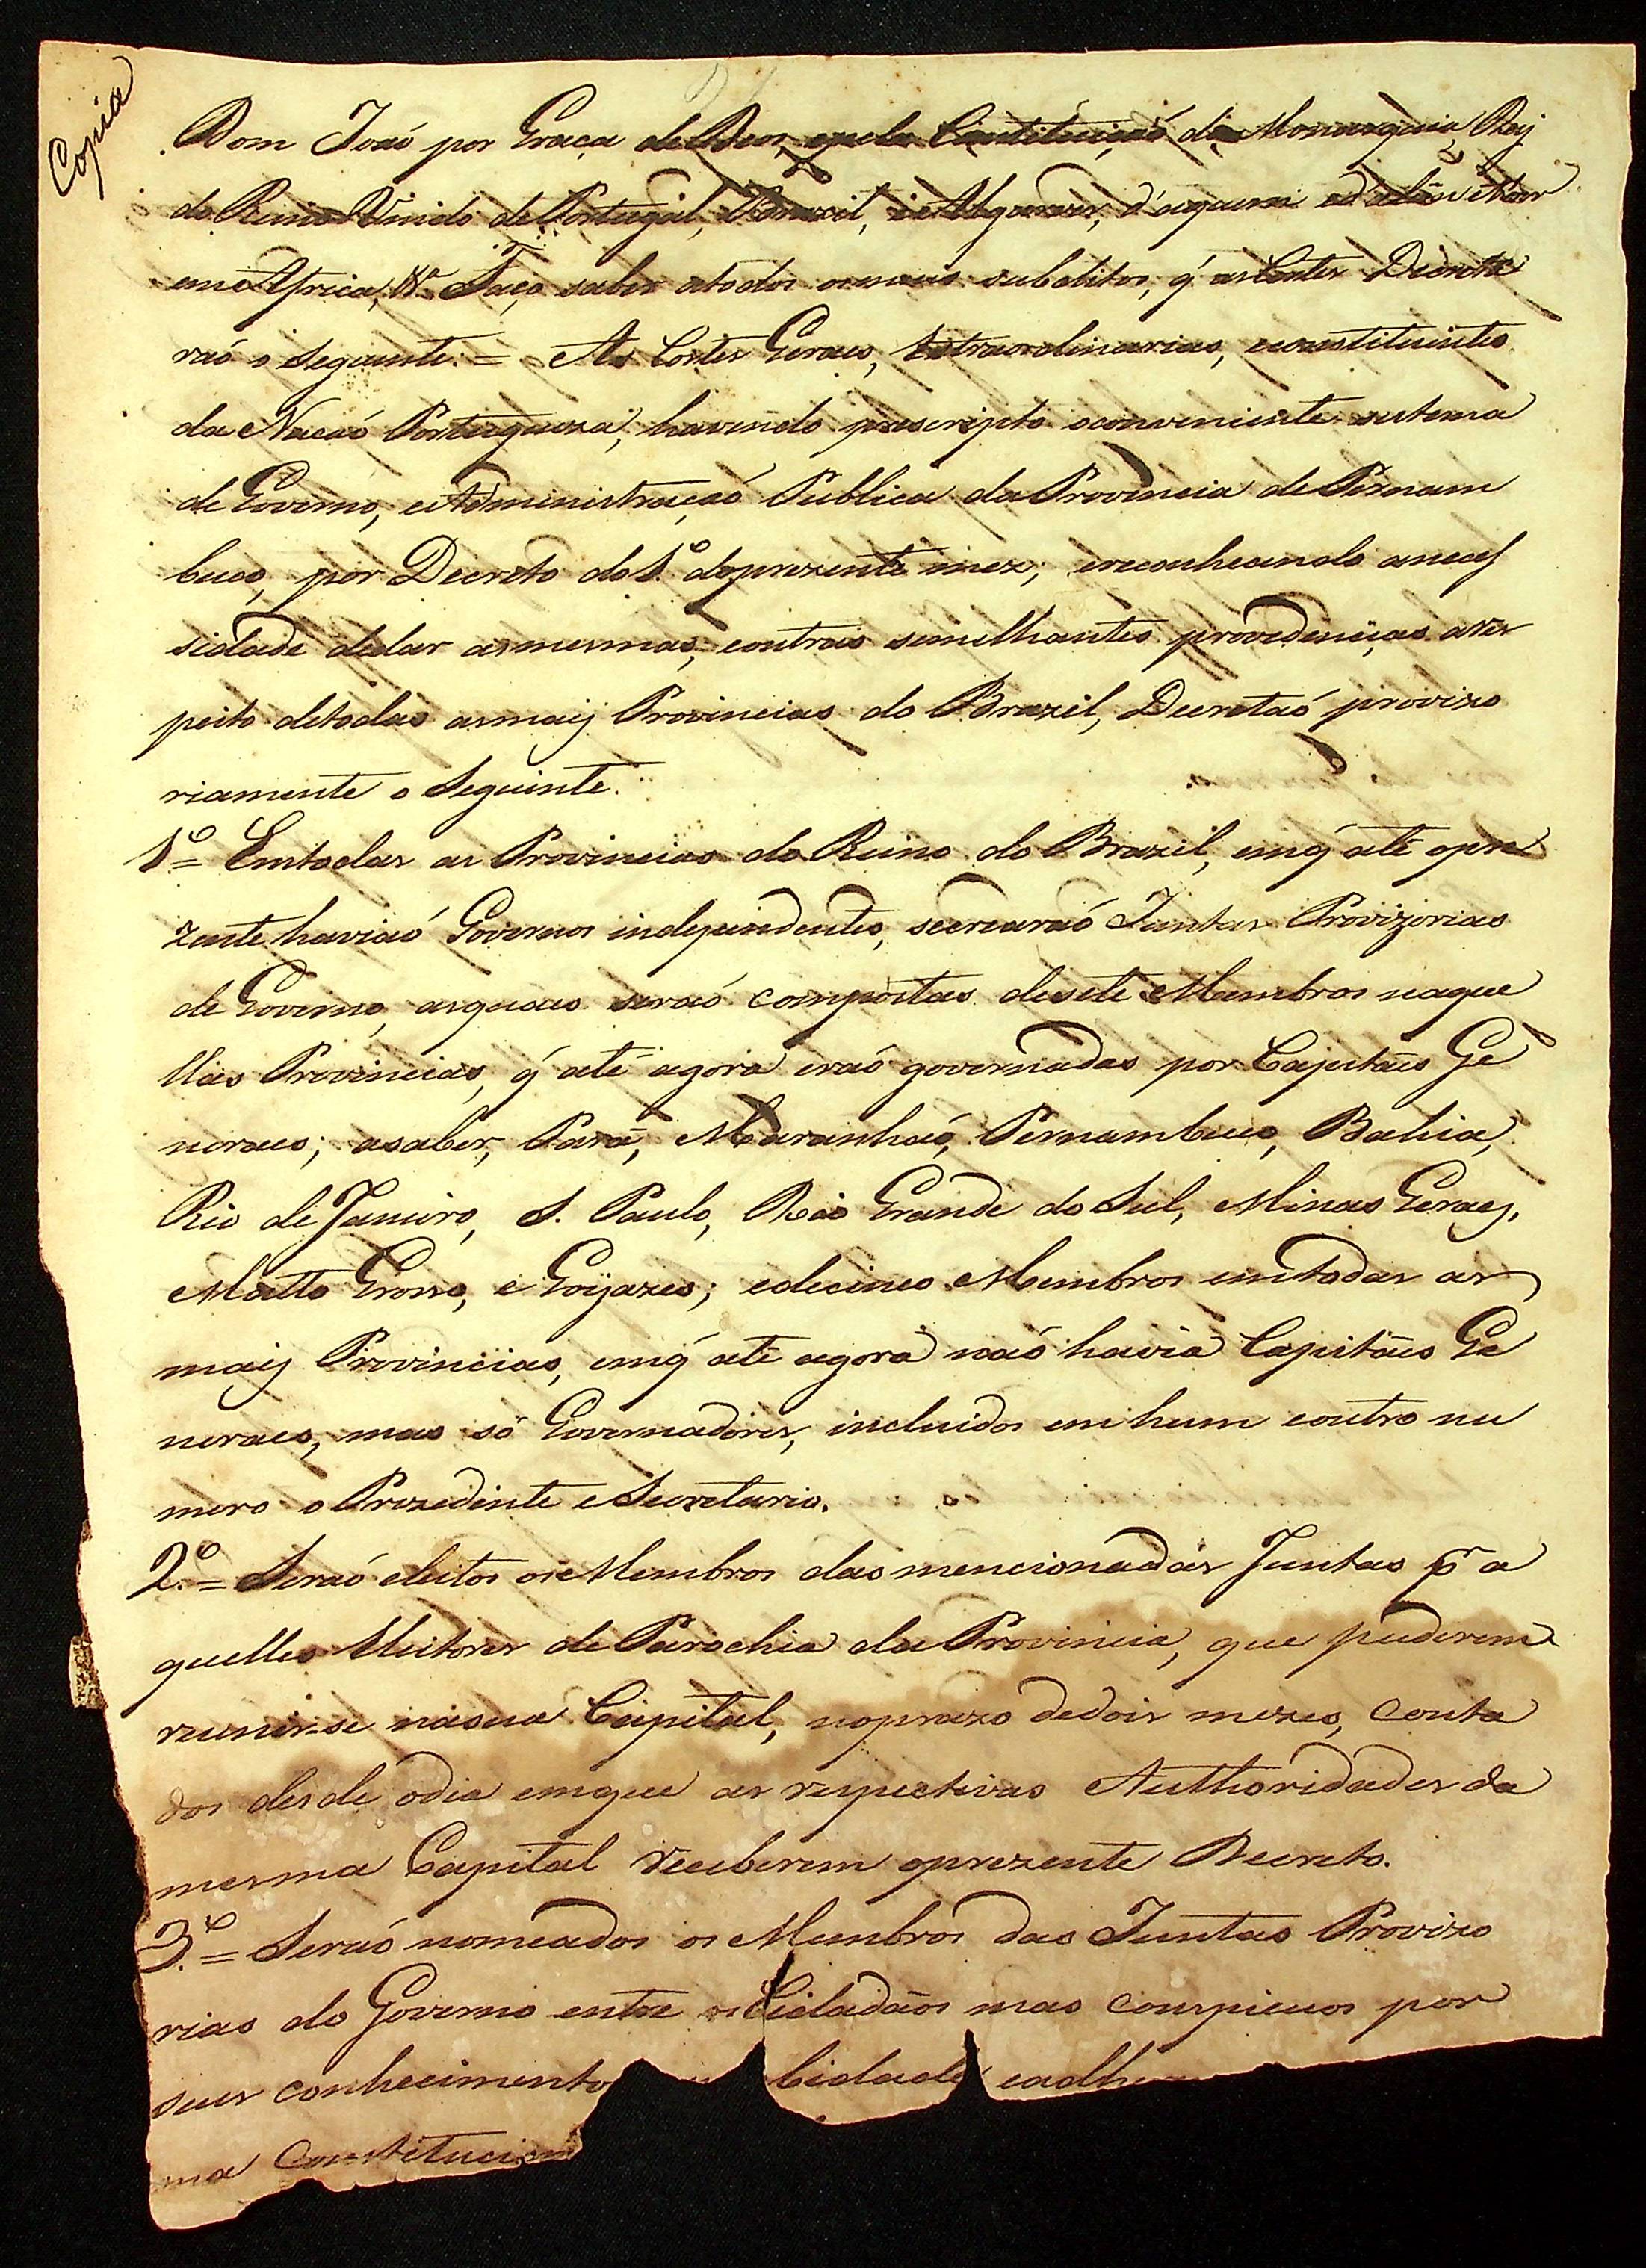 Copia
Dom Joaó por Graça de Deos, epela Constituiçaó da Monarquia, Rey
do Reino Unido de Portugal, Brazil, e Algarves, d'aquem ed'alem Mar
em Africa, &ª Faço saber atodos os meus subditos, q̃ as Cortes Decreta
raó o Seguinte. = As Cortes Geraes, Extraordinarias, econstituintes
da Naçaó Portugueza, havendo prescripto oconveniente sistema
de Governo, eAdministraçaó Publica da Provincia de Pernam
buco, por Decreto do 1º doprezente mez; ereconhecendo aneces
sidade dedar asmesmas, eoutras semilhantes providencias ares
peito detodas asmaiz Provincias do Brazil, Decretaó provizo
riamente o Seguinte.
1º = Emtodas as Provincias do Reino do Brazil, emq̃ até opre
zente haviaó Governos independentes, secrearaó Juntas Provizorias
de Governo, asquaes seraó compostas desete Membros naque
llas Provincias, q̃ até agora eraó governadas por Capitães Ge
neraes; asaber, Pará, Maranhaó, Pernambuco, Bahia,
Rio de Janeiro, S. Paulo, Rio Grande do Sul, Minas Geraes,
Matto Grosso, e Goyazes; edecinco Membros emtodas as
maiz Provincias, emq̃ até agora naó havia Capitães Ge
neraes, mas só Governadores, incluidos em hum eoutro nu
mero o Prezidente e Secretario.
2º = Seraó eleitos os Membros das mencionadas Juntas pr a
quelles Eleitores de Parochia da Provincia, que puderem
reunir-se nasua Capital, noprazo dedois mezes, conta
dos desde odia emque as respectivas Authoridades da
mesma Capital receberem oprezente Decreto.
3º = Seraó nomeados os Membros das Juntas Provizo
rias do Governo entre os Cidadãos mas conspicuos por
seus conhecimentos bidade eadhe
ma Constitucion